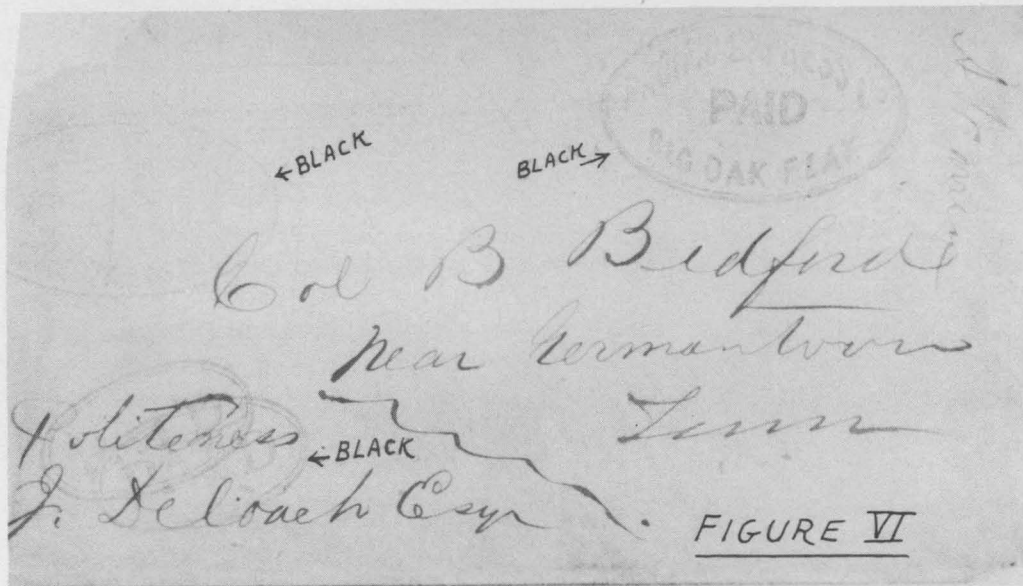 PAID
BIG OAK FLAT
← BLACK
BLACK →
Col B Bedford
near Germantown
Tenn
Politeness
← BLACK
J. Deloach Esqr
FIGURE VI